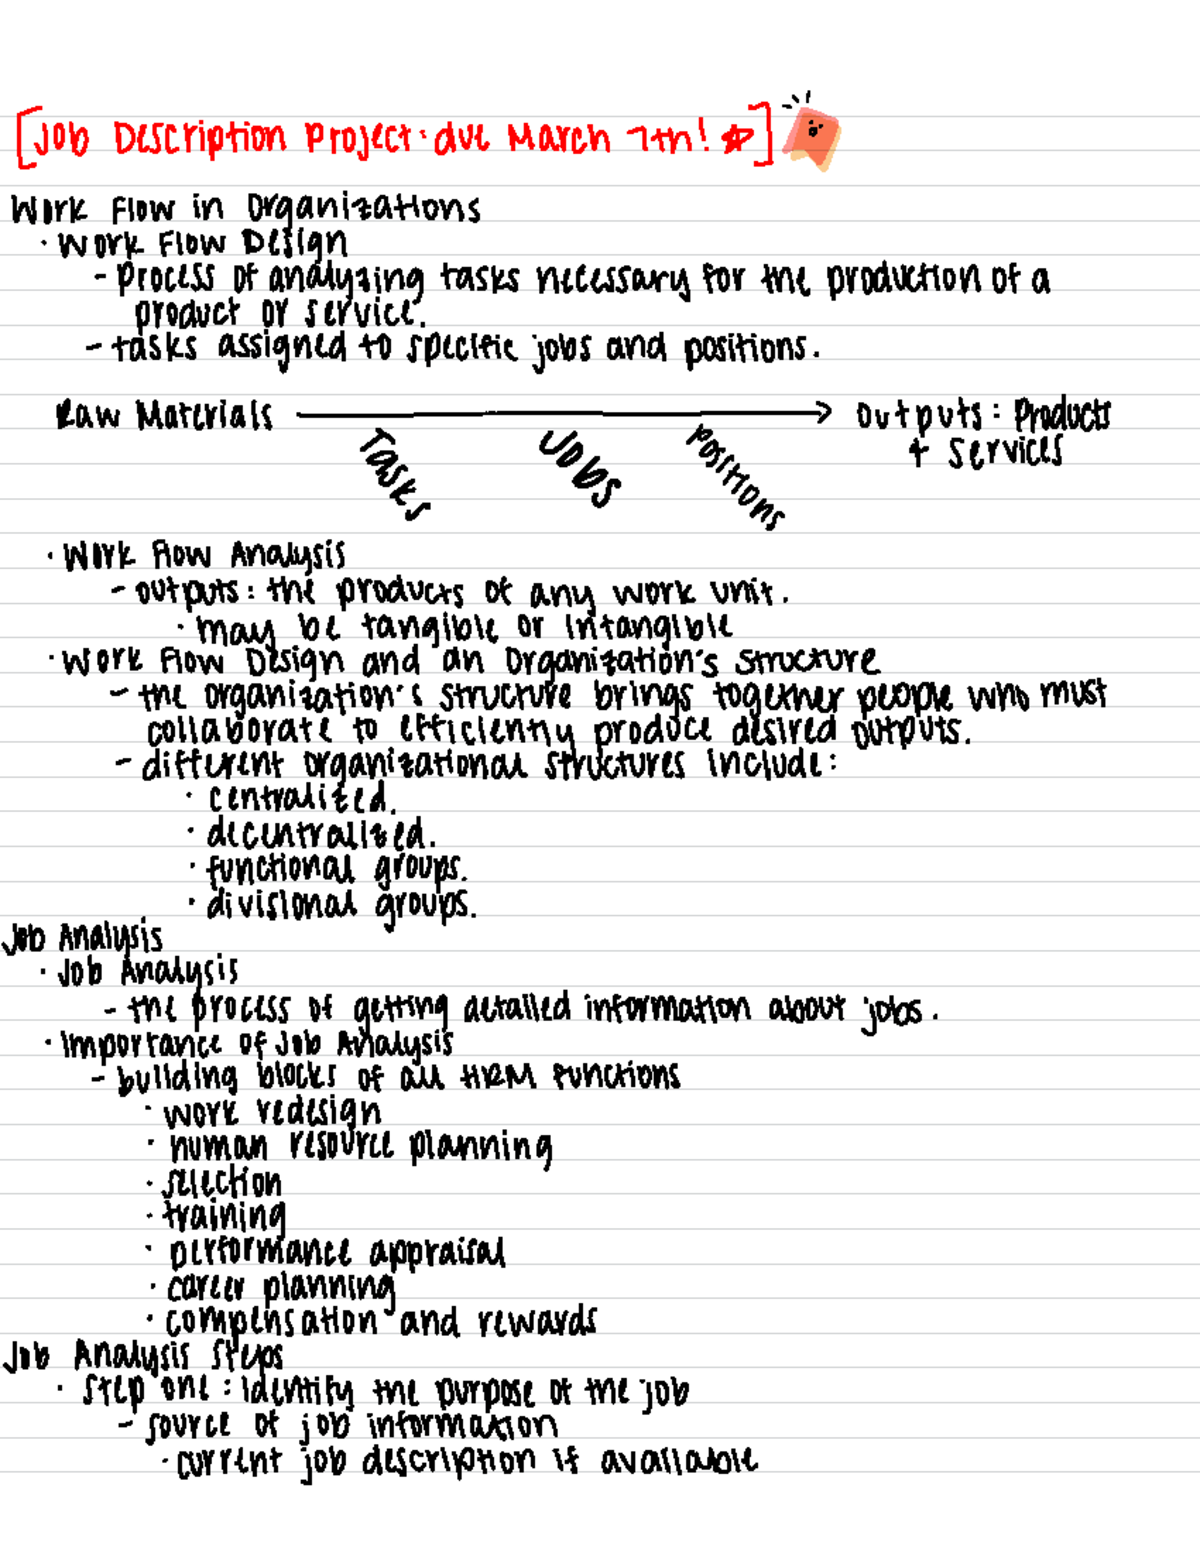 [Job Description Project: due March 7th! ☆]
Work Flow in Organizations
· Work Flow Design
- process of analyzing tasks necessary for the production of a
product or service.
- tasks assigned to specific jobs and positions.
Raw Materials → Outputs: Products
+ Services
Tasks Jobs Positions
· Work Flow Analysis
- outputs: the products of any work unit.
· may be tangible or intangible
· Work Flow Design and an Organization's Structure
- the organization's structure brings together people who must
collaborate to efficiently produce desired outputs.
- different organizational structures include:
· centralized.
· decentralized.
· functional groups.
· divisional groups.
Job Analysis
· Job Analysis
- the process of getting detailed information about jobs.
· Importance of Job Analysis
- building blocks of all HRM functions
· work redesign
· human resource planning
· selection
· training
· performance appraisal
· career planning
· compensation and rewards
Job Analysis Steps
· Step one: identify the purpose of the job
- source of job information
· current job description if available